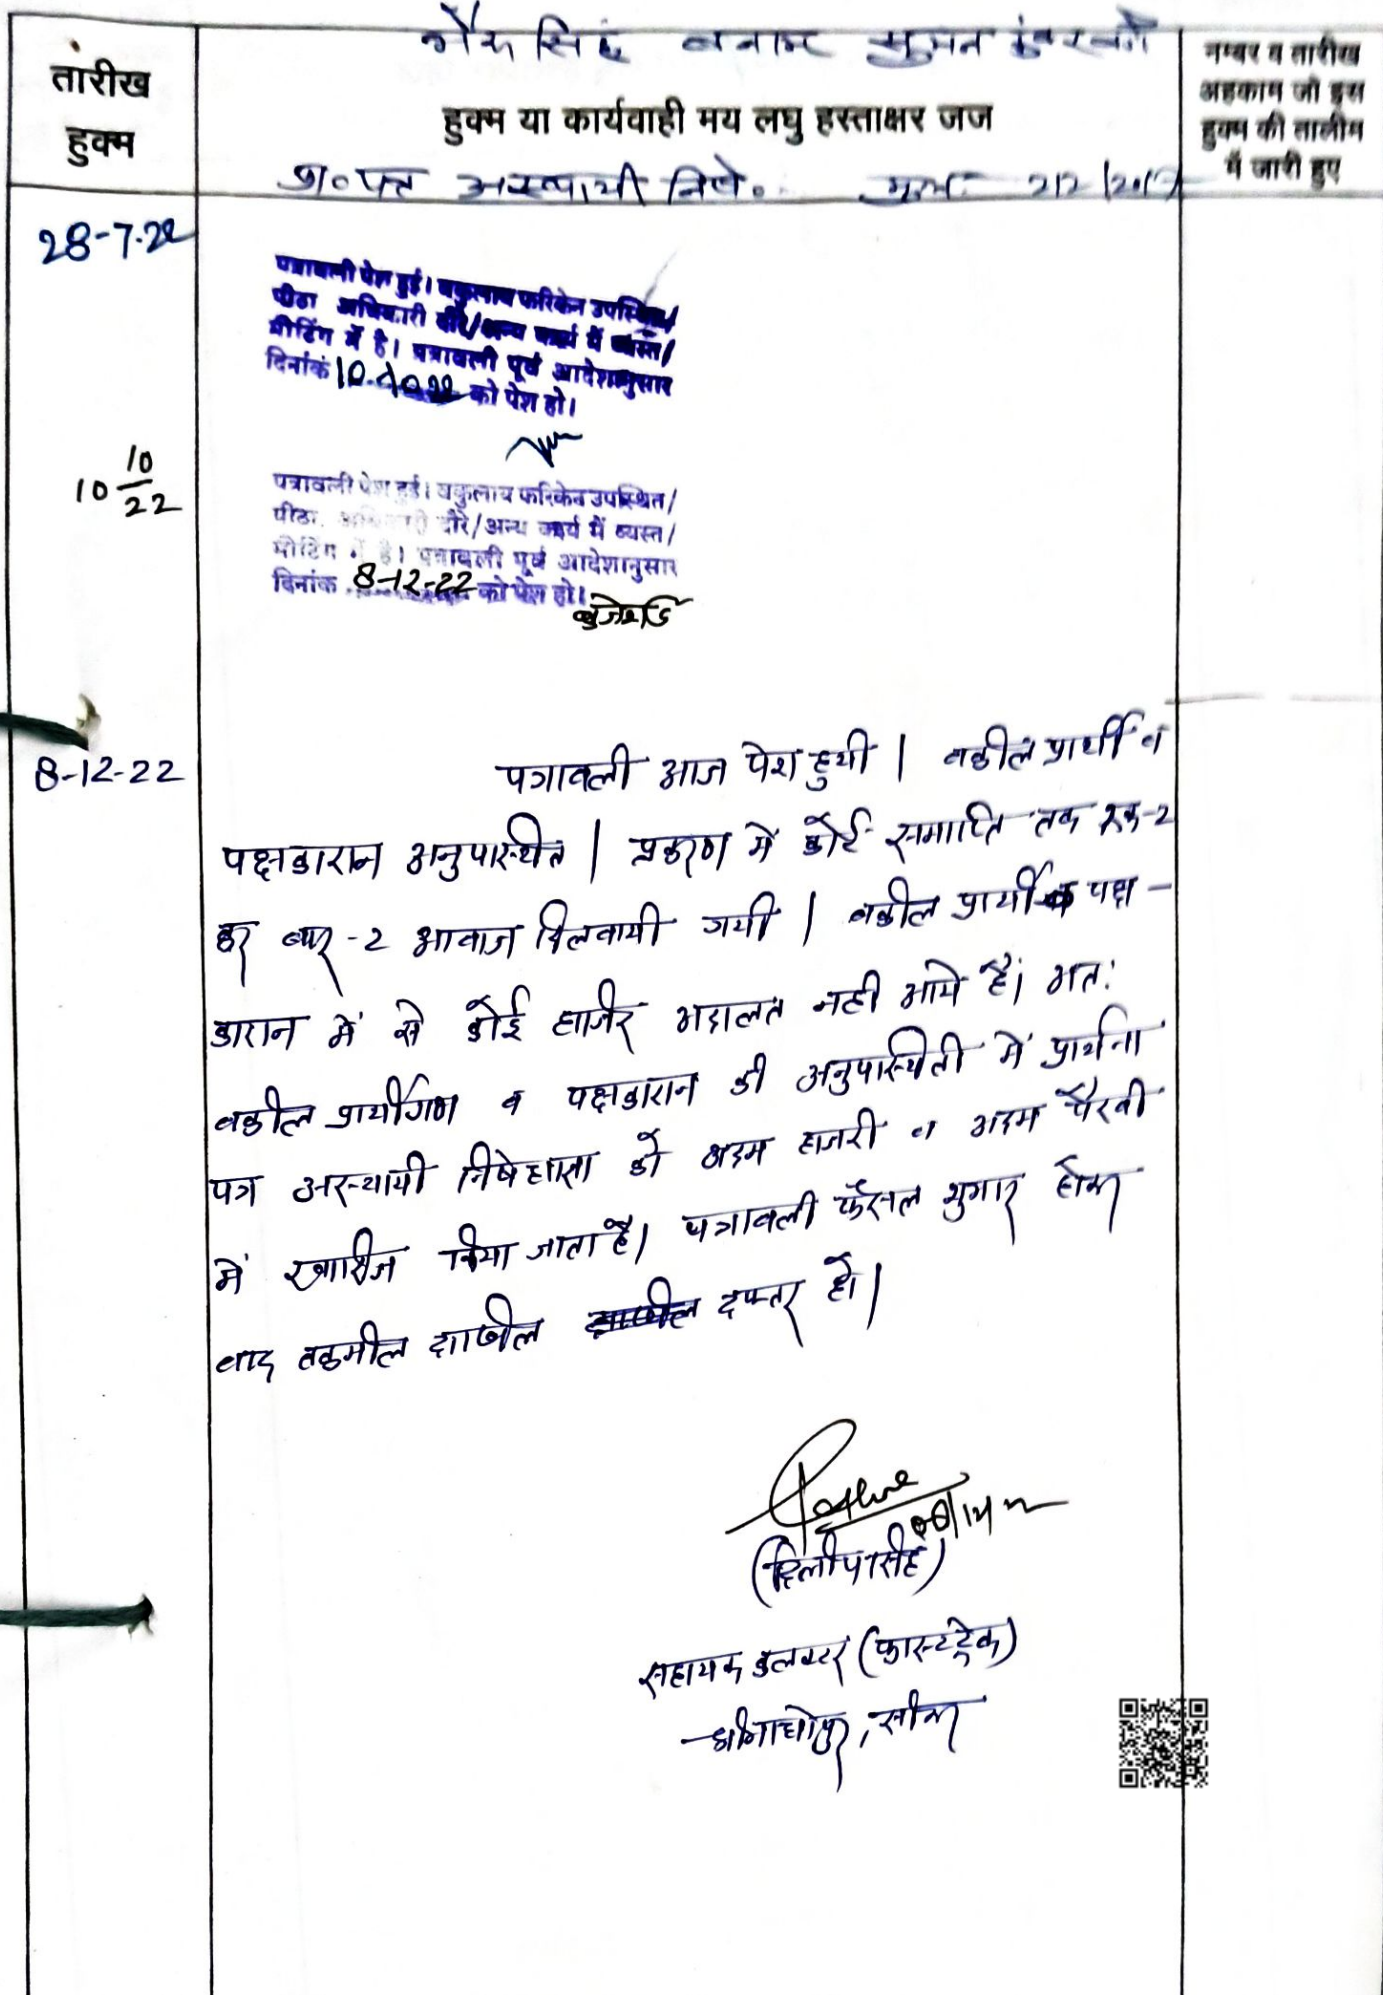 भैरू सिंह बनाम सुमन कंवर
तारीख
हुक्म
हुक्म या कार्यवाही मय लघु हस्ताक्षर जज
नम्बर व तारीख
अहकाम जो इस
हुक्म की तालीम
में जारी हुए
प्रा० पत्र अस्थायी निषे०
28-7-22
पत्रावली पेश हुई। वकुलाय फरिकेन उपस्थित/
पीठा अधिकारी दौरे/अन्य कार्य में व्यस्त/
मीटिंग में है। पत्रावली पूर्व आदेशानुसार
दिनांक 10-10-22 को पेश हो।
10 10/22
पत्रावली पेश हुई। वकुलाय फरिकेन उपस्थित/
पीठा अधिकारी दौरे/अन्य कार्य में व्यस्त/
मीटिंग में है। पत्रावली पूर्व आदेशानुसार
दिनांक 8-12-22 को पेश हो।
8-12-22
पत्रावली आज पेश हुयी। वकील प्रार्थी व
पक्षकारान अनुपस्थित। प्रकरण में कोर्ट समाप्ति तक रूक-2
कर बार-2 आवाज दिलवायी गयी। वकील प्रार्थी व पक्ष-
कारान में से कोई हाजिर अदालत नही आये है। अत:
वकील प्रार्थीगण व पक्षकारान की अनुपस्थिती में प्रार्थना
पत्र अस्थायी निषेधाज्ञा को अदम हाजरी व अदम पैरवी
में खारीज किया जाता है। पत्रावली फैसल शुमार होकर
बाद तकमील दाखील दफ्तर हो।
(दिलीपसिंह)
सहायक कलक्टर (फास्टट्रेक)
श्रीमाधोपुर, सीकर